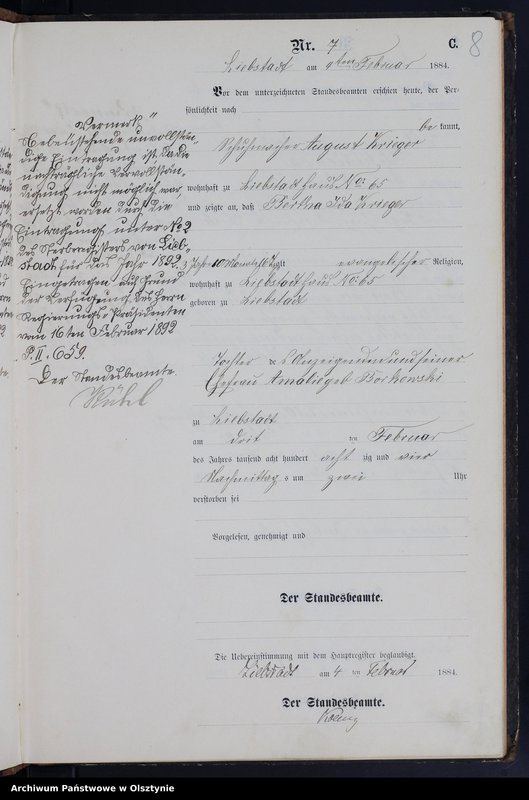 Nr. 7
C. 8
Liebstadt am 4ten Februar 1884.
Vor dem unterzeichneten Standesbeamten erschien heute, der Per-
sönlichkeit nach
be kannt,
Schuhmacher August Krieger
wohnhaft zu Liebstadt Haus No: 65
und zeigte an, daß Bertha Ida Krieger
3 Jahre 10 Monate alt evangelischer Religion,
wohnhaft zu Liebstadt Haus No: 65
geboren zu Liebstadt
Tochter des Anzeigenden und seiner
Ehefrau Amalie geb Borkowski
zu Liebstadt
am drit ten Februar
des Jahres tausend acht hundert acht zig und vier
Nachmittag s um zwei Uhr
verstorben sei
Vorgelesen, genehmigt und
Der Standesbeamte.
Die Uebereinstimmung mit dem Hauptregister beglaubigt.
Liebstadt am 4 ten Februar 1884.
Der Standesbeamte.
"Vermerk"
Nebenstehende unvollstän-
dige Eintragung ist, da die
nachträgliche Vervollstän-
digung nicht möglich war
ersetzt worden durch die
Eintragung unter No 2
des Sterberegisters von Lieb-
stadt für das Jahr 1892.
Eingetragen auf Grund
der Verfügung des Herrn
Regierungs-Präsidenten
vom 16ten Februar 1892
P. II. 659.
Der Standesbeamte.
Archiwum Państwowe w Olsztynie